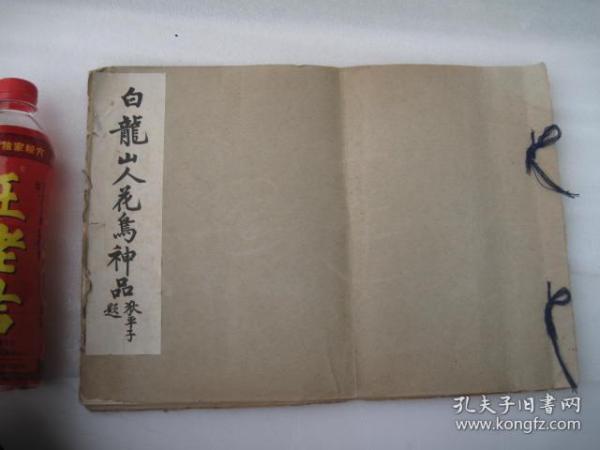 白龍山人花鳥神品
狄平子
題
王老吉
孔夫子旧書网
www.kongfz.com